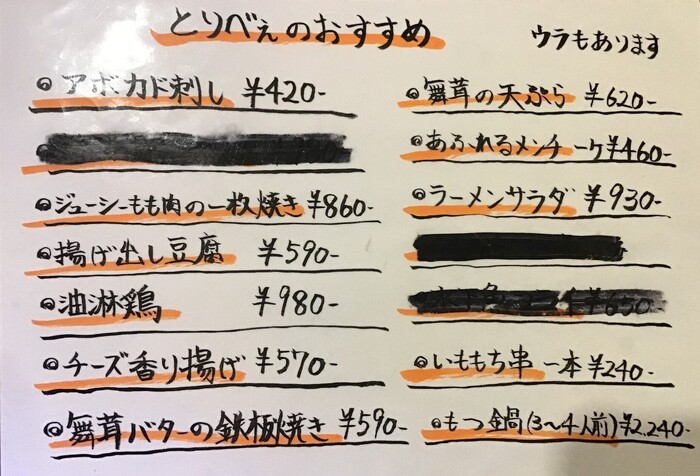 とりべぇのおすすめ
ウラもあります
◎アボカド刺し ¥420-
◎ジューシーもも肉の一枚焼き ¥860-
◎揚げ出し豆腐 ¥590-
◎油淋鶏 ¥980-
◎チーズ香り揚げ ¥570-
◎舞茸バターの鉄板焼き ¥590-
◎舞茸の天ぷら ¥620-
◎あふれるメンチ 一ケ¥460-
◎ラーメンサラダ ¥930-
¥650-
◎いももち串 一本 ¥240-
◎もつ鍋(3〜4人前)¥2,240-